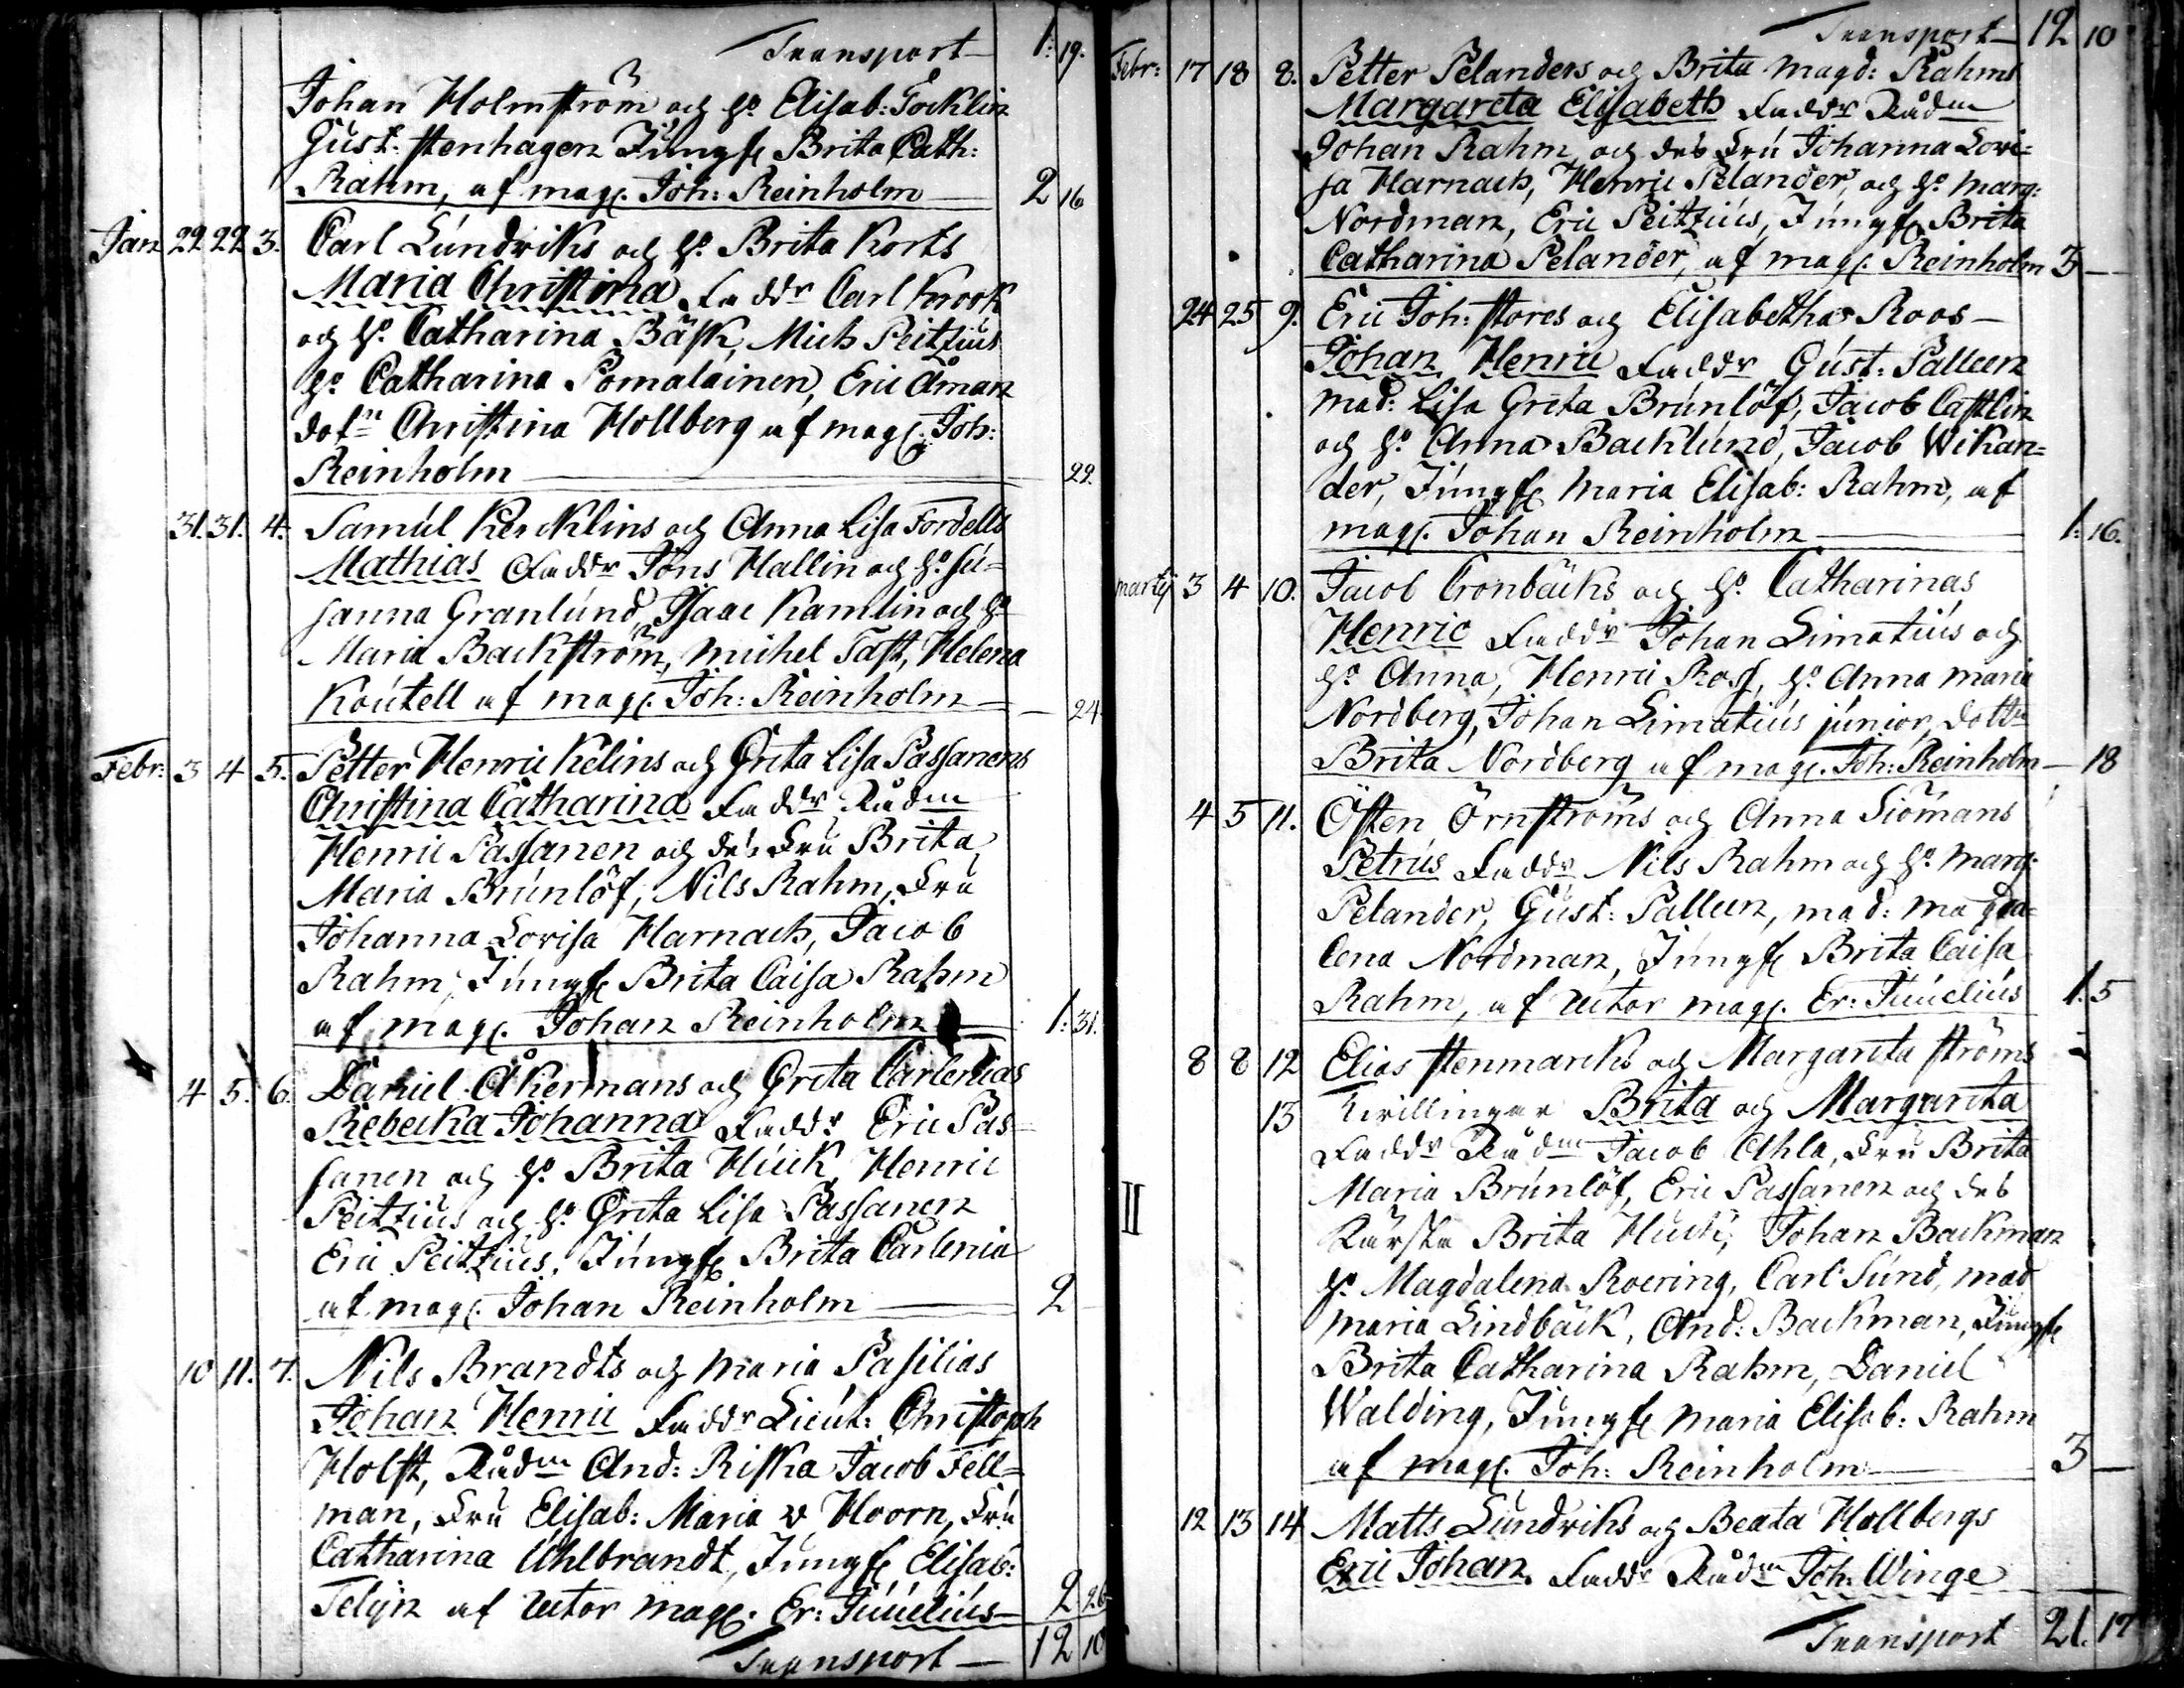 Transport — 1: 19.
Johan Holmström och H:o Elisab: Tocklin
Gust: Stenhagen Jungf Brita Cath:
Rahm, af mag. Joh: Reinholm — 2 16
Jan 22 22 3. Carl Lundriks och H:o Brita Korts
Maria Christina Faddr Carl Krook
och H:o Catharina Bäsk, Mich Peitzius
H:o Catharina Pomalainen, Eric Åman
dotn Christina Hollberg af mag. Joh:
Reinholm — 22.
31. 31. 4. Samul Kercklins och Anna Lisa Fordells
Mathias Faddr Jöns Hallin och H:o Su=
sanna Granlund, Isaac Kamlin och H:o
Maria Backström, Michel Tast, Helena
Koutell af mag. Joh: Reinholm — 24.
Febr: 3 4 5. Petter Henric Kelins och Greta Lisa Passanens
Christina Catharina Faddr Rådm
Henric Passanen och des Fru Brita
Maria Brunlöf, Nils Rahm, Fru
Johanna Lovisa Harnach, Jacob
Rahm, Jungf Brita Caisa Rahm
af mag. Johan Reinholm — 1: 31.
4 5. 6. Daniel Åkermans och Greta Carlenias
Rebecka Johanna Faddr Eric Pas=
sanen och H:o Brita Huck, Henric
Peitzius och H:o Greta Lisa Passanen
Eric Peitzius, Jungf Brita Carlenia
af mag. Johan Reinholm — 2 —
10 11. 7. Nils Brandts och Maria Pasilias
Johan Henric Faddr Lieut: Christoph
Holst, Rådm And: Riska Jacob Fell=
man, Fru Elisab: Maria v Hoorn, Fru
Catharina Uhlbrandt, Jungf Elisab:
Telijn af Rector mag. Er: Juuelius — 2 26
Transport — 12 10
Transport — 12 10
Febr: 17 18 8. Petter Pelanders och Brita Magd: Rahms
Margareta Elisabeth Faddr Rådm
Johan Rahm och des Fru Johanna Lovi=
sa Harnach, Henric Pelander, och H:o Marg:
Nordman, Eric Peitzius, Jungf Brita
Catharina Pelander, af mag. Reinholm 3 —
24 25 9. Eric Joh: Stores och Elisabetha Roos —
Johan Henric Faddr Gust: Palleen
Mad: Lisa Greta Brunlöf, Jacob Castlin
och H:o Anna Backlund, Jacob Wikan=
der, Jungf Maria Elisab: Rahm, af
mag. Johan Reinholm — 1: 16.
Martij 3 4 10. Jacob Cronbäcks och H:o Catharinas
Henric Faddr Johan Limatius och
H:o Anna, Henric Ross, H:o Anna Maria
Nordberg, Johan Limatius junior, dottr
Brita Nordberg af mag. Joh: Reinholm — 18
4 5 11. Östen Örnströms och Anna Siömans
Petrus Faddr Nils Rahm och H:o Marg:
Pelander, Gust: Palleen, Mad: Magda=
lena Nordman, Jungf Brita Caisa
Rahm, af Rector mag. Er: Juuelius 1. 5
8 8 12 Elias Stenmarcks och Margareta Ströms
13 Tvillingar Brita och Margareta
Faddr Rådm Jacob Ahla, Fru Brita
Maria Brunlöf, Eric Passanen och des
Kärsta Brita Huck, Johan Backman
H:o Magdalena Roering, Carl Sund, Mad
Maria Lindbäck, And: Backman, Jungf
Brita Catharina Rahm, Daniel
Walding, Jungf Maria Elisab: Rahm
af mag. Joh: Reinholm — 3 —
12 13 14 Matts Lundriks och Beata Hollbergs
Eric Johan Faddr Rådm Joh: Winge
Transport 21. 17